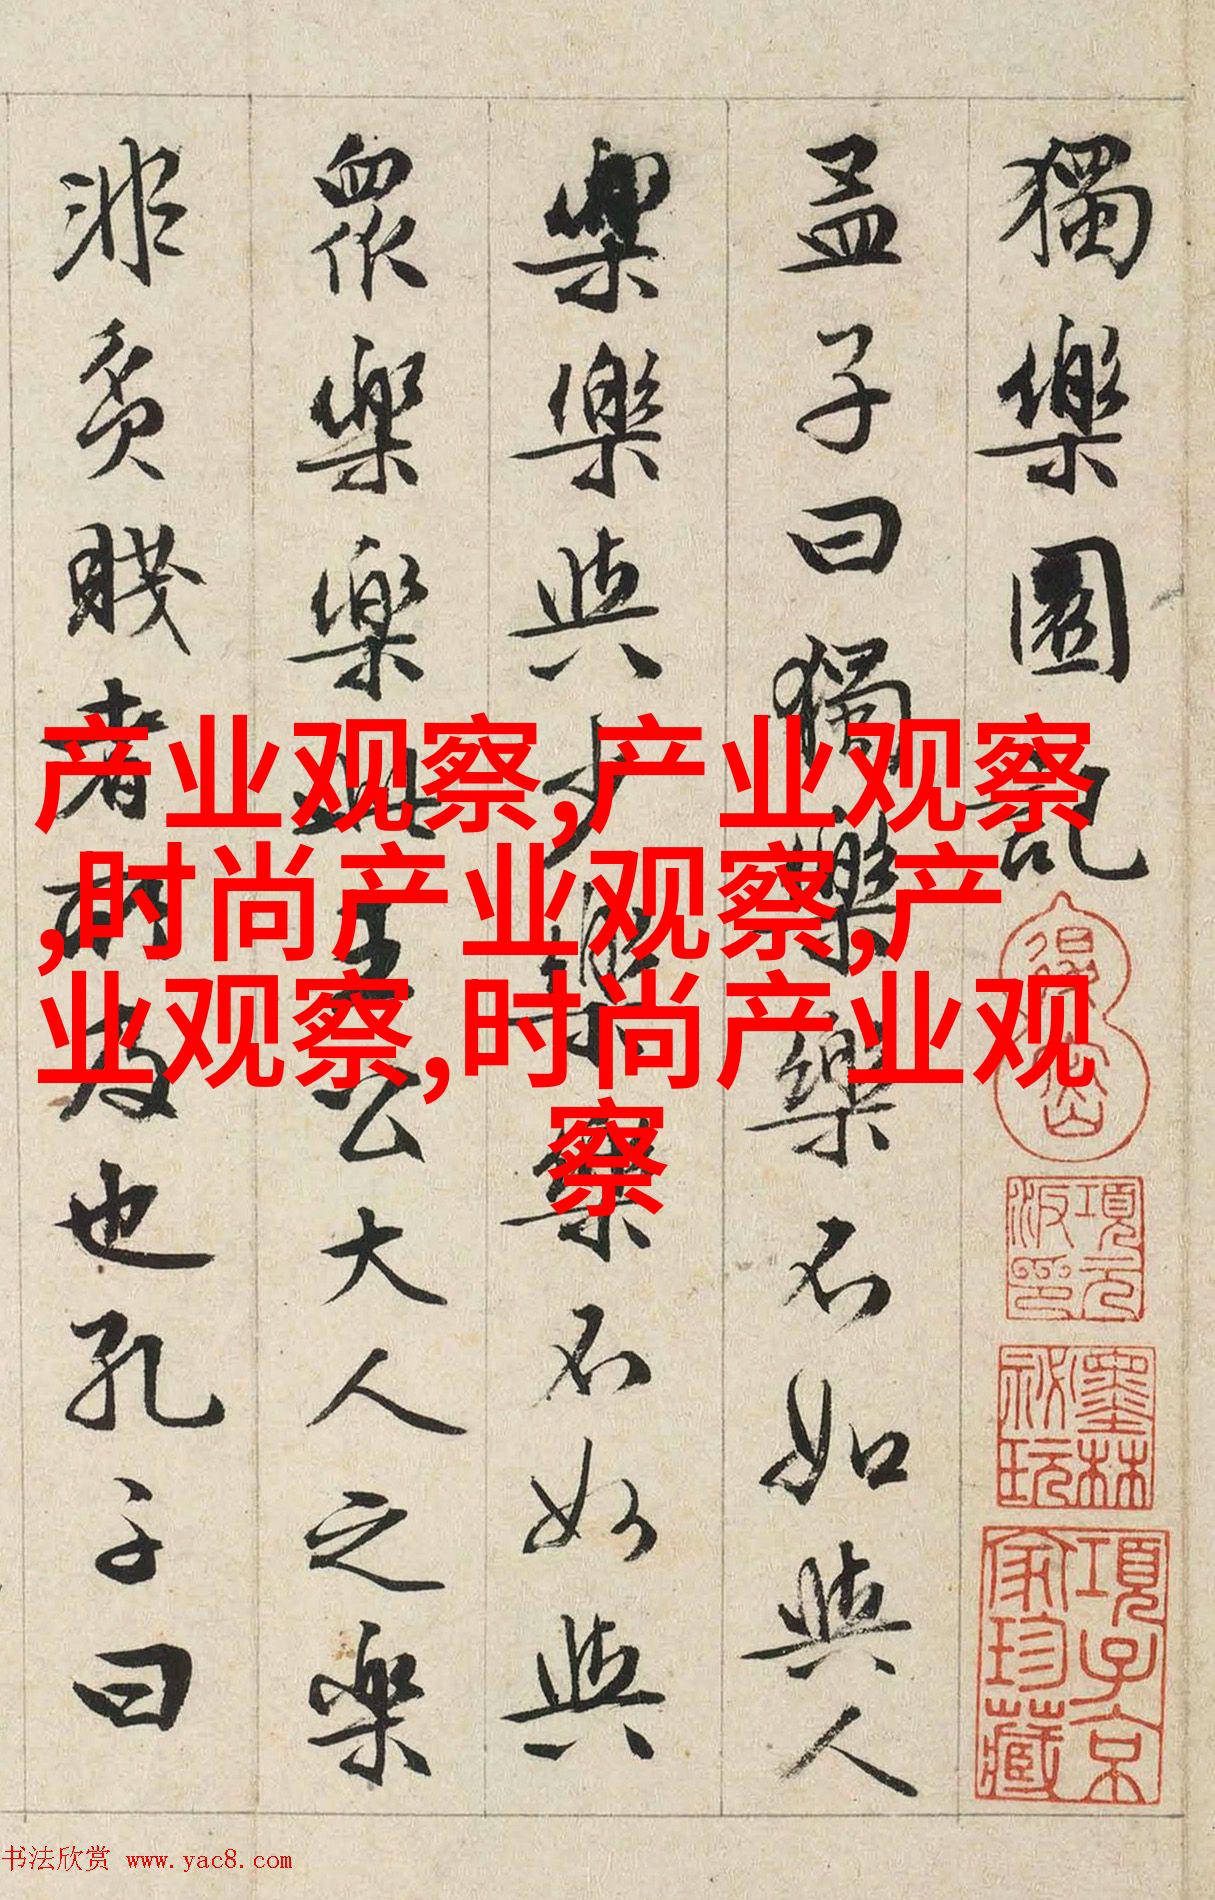 獨樂園記
孟子曰獨樂樂不如與人
樂樂與少樂樂不如與
眾樂樂此王公大人之樂
非貧賤者所及也孔子曰
退密
項元汴印
墨林秘玩
項子京家珍藏
产业观察,产业观察
,时尚产业观察,产
业观察,时尚产业观
察
书法欣赏 www.yac8.com